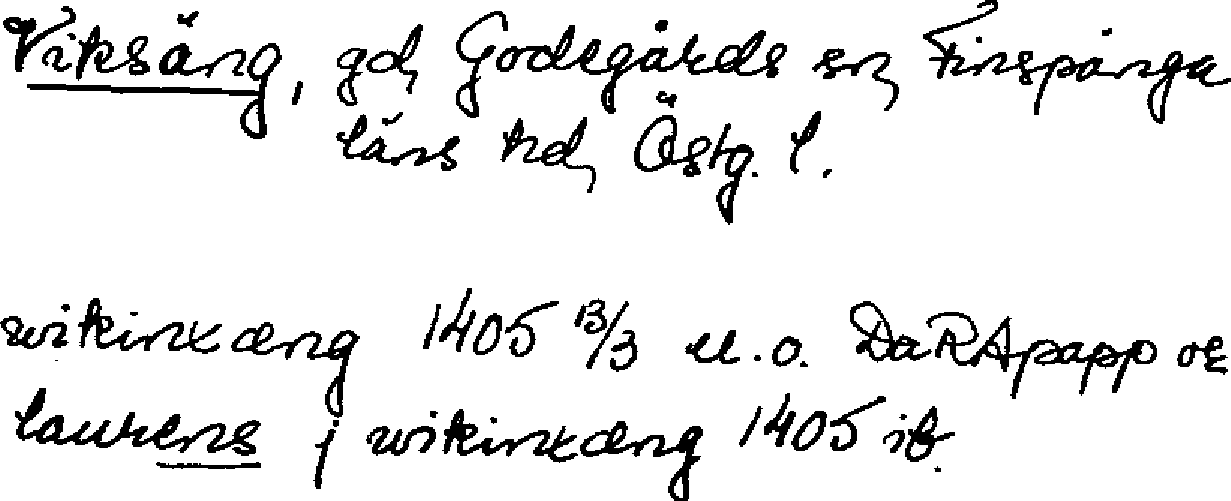 Viksäng, gd, Godegårds sn, Finspånga
läns hd, Östg. l.
wikinxæng 1405 13/3 u.o. DaRApapp or
laurens j wikinxæng 1405 ib.